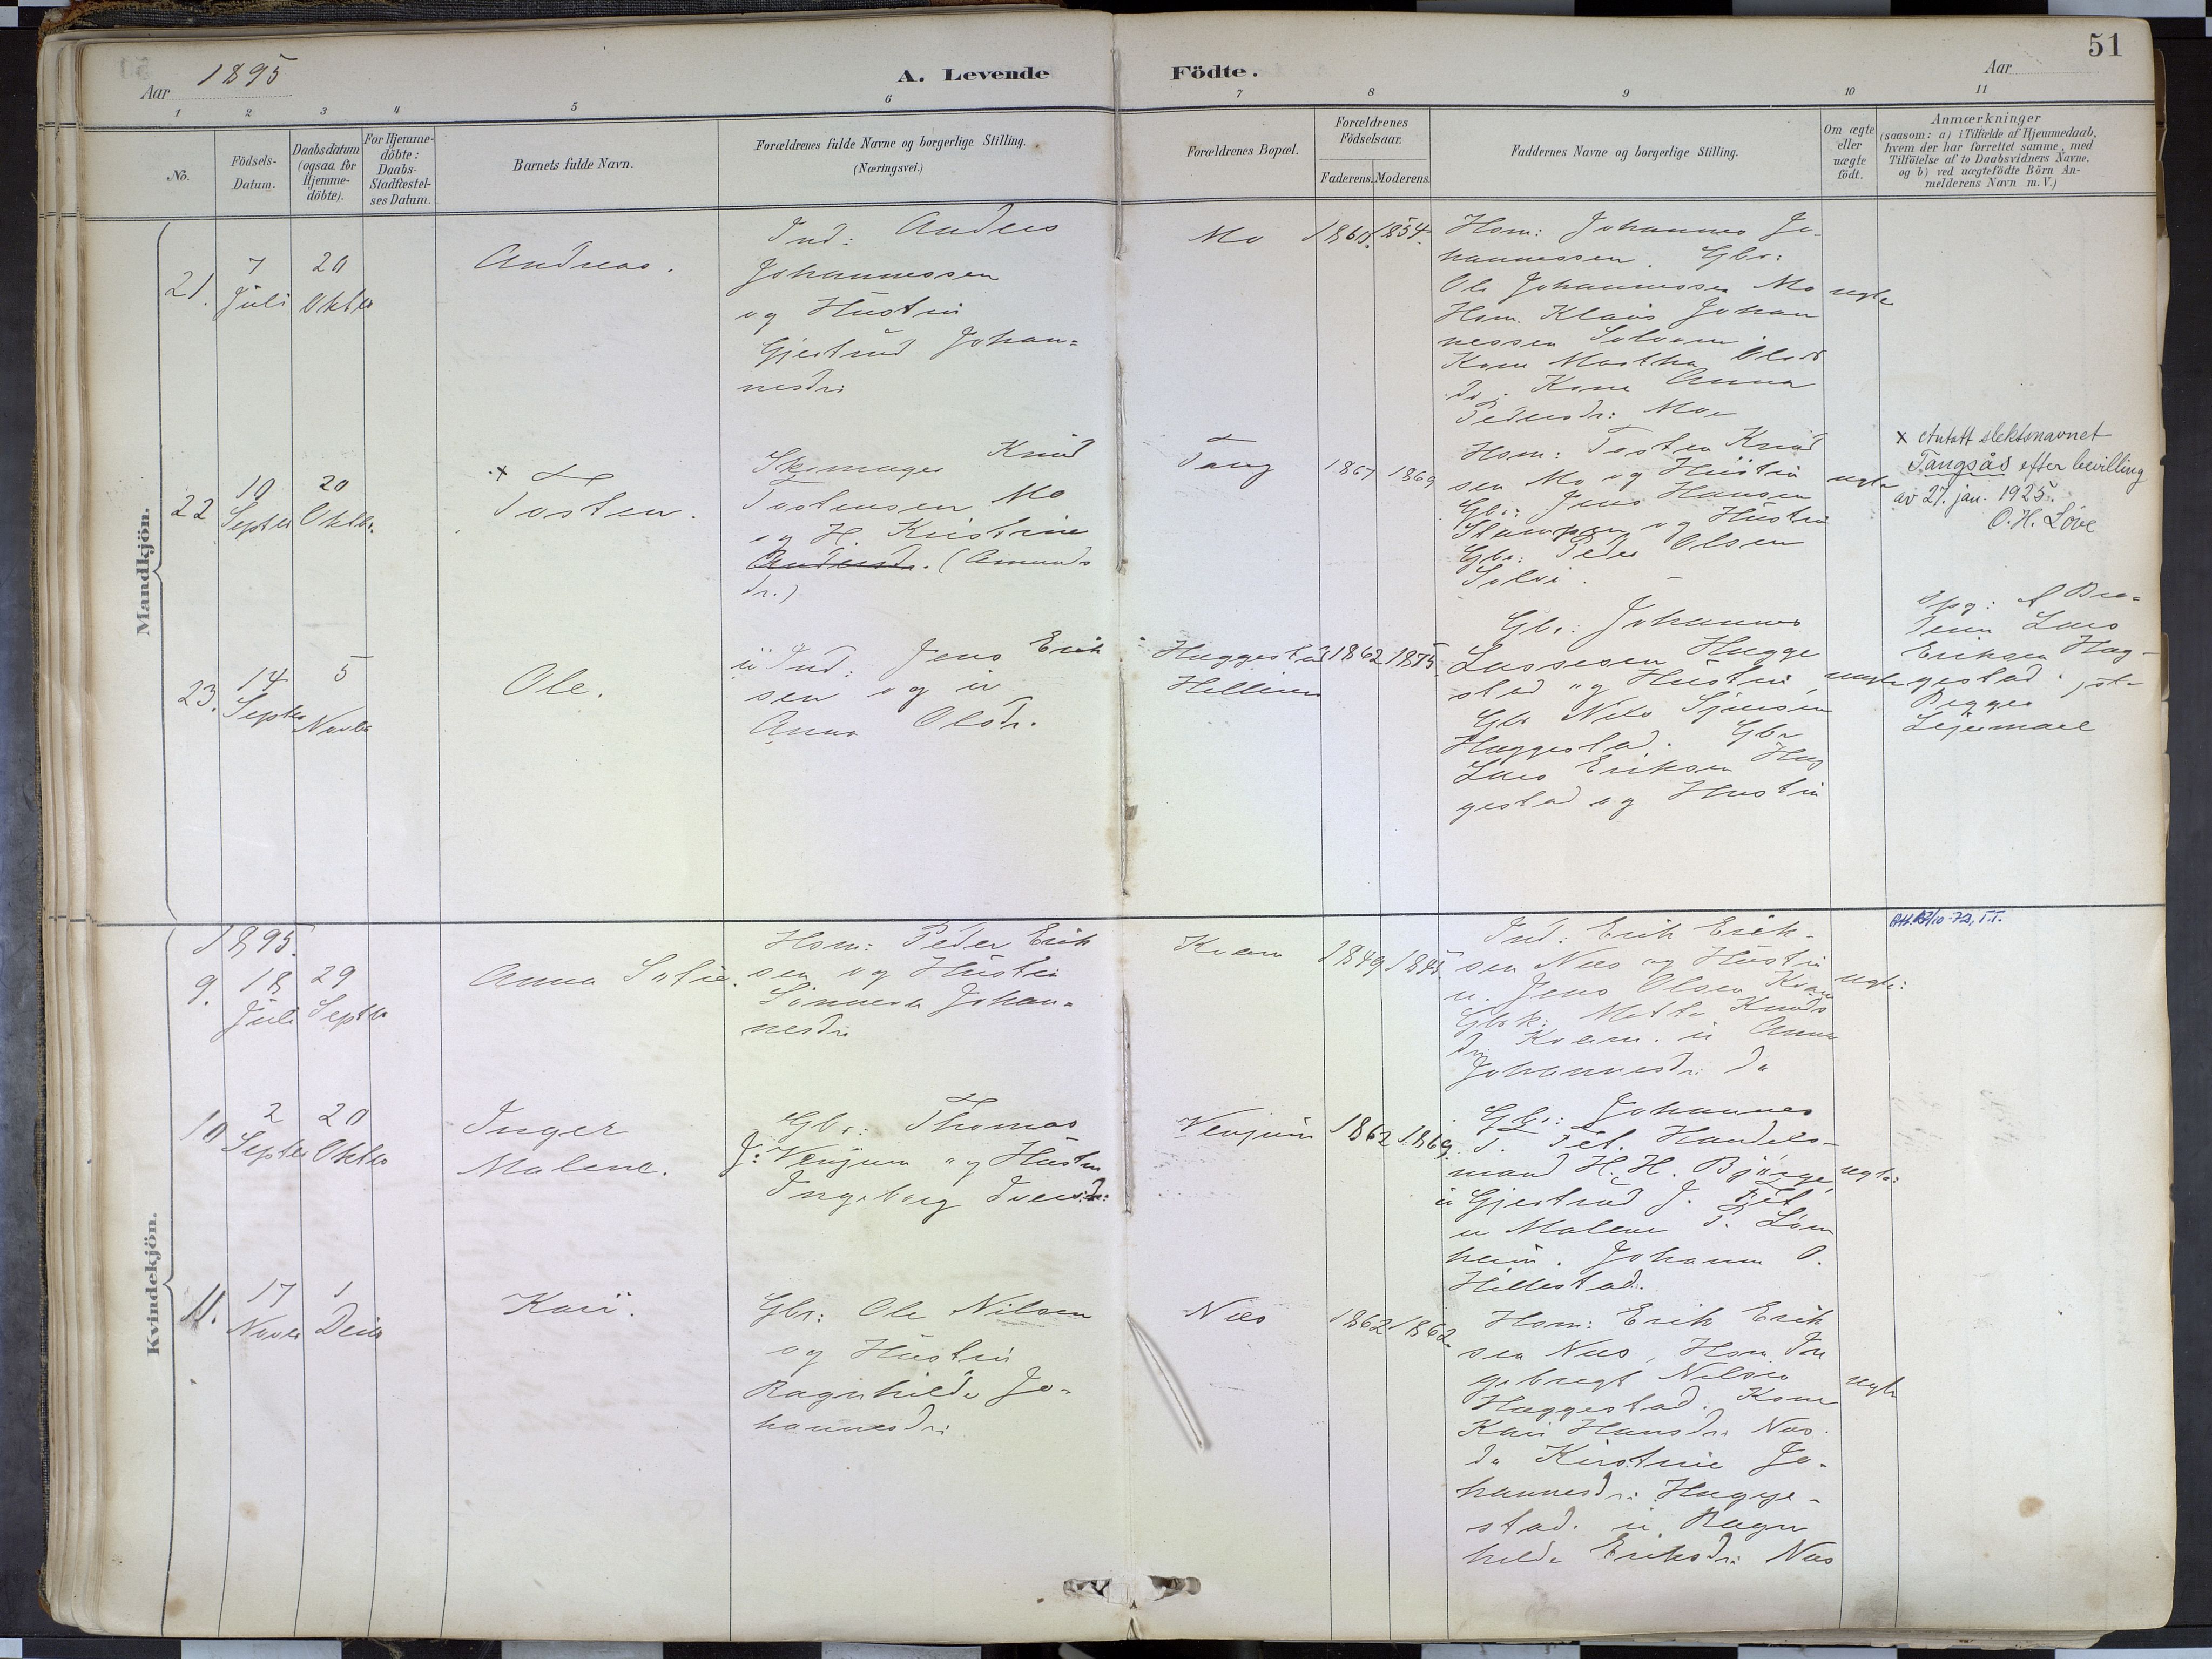 51
Aar 1895
A. Levende Födte.
Aar
1 2 3 4 5 6 7 8 9 10 11
No.
Födsels-
Datum.
Daabsdatum
(ogsaa for
Hjemme-
döbte).
For Hjemme-
döbte:
Daabs-
Stadfæstel-
ses Datum.
Barnets fulde Navn.
Forældrenes fulde Navne og borgerlige Stilling.
(Næringsvei.)
Forældrenes Bopæl.
Forældrenes
Födselsaar.
Faderens. Moderens.
Faddernes Navne og borgerlige Stilling.
Om ægte
eller
uægte
födt.
Anmærkninger
(saasom: a) i Tilfælde af Hjemmedaab,
hvem der har forrettet samme, med
Tilföielse af to Daabsvidners Navne,
og b) ved uægtefödte Börn An-
melderens Navn m. V.)
Mandkjön.
21.
7
Juli
20
Oktbr
Andreas.
Ind: Anders
Johannessen
og Hustru
Gjertrud Johan=
nesdr:
Mo
1854.
Hsm: Johannes Jo-
hannessen. Gbr:
Ole Johannessen Mo
Hsm. Klaus Johan
nessen
Kone Martha Olsd
Kone Anna
Pedersdr: Mo
ægte
22
10
Septbr
20
Oktbr.
x
Tosten.
Skomager Knud
Tostensen Mo
og H. Kristine
(Amunds
dr.)
Tang
1867 1869
Hsm: Tosten Knud
sen Mo og Hustru
Gbr: Jens Hansen
og Hustru
Gbr: Peder Olsen
ægte
x Antatt slektsnavnet
Tangsås efter bevilling
av 27. jan. 1925.
O. H. Löve
23.
14
Septbr
5
Novbr
Ole.
u Ind: Jens Erik
sen og u
Anna Olsdr.
Huggestad
1862 1875.
Gbr: Johannes
Lassesen Hugge
stad og Hustru,
Gbr Nils
Huggestad. Gbr
Lars Eriksen Hug
gestad og Hustru
uægte
Opg: Af Bro-
deren Lars
Eriksen Hug-
gestad. 1ste
Begges
Leiermaal
Kvindekjön.
1895.
9.
18
Juli
29
Septbr
Anna Sofie.
Hsm: Peder Erik
sen og Hustru
Johan-
nesdr:
Kvam
1849
Ind: Erik Erik-
sen Næs og Hustru
u. Jens Olsen Kvam
Gbrk: Knuds
dr: Kvam. u Anna
Johannesdr: do
ægte:
10
2
Septbr
20
Oktbr
Inger
Malene.
Gbr: Thomas
J: Venjum og Hustru
Ingeborg
Venjum
1862 1869
Gbr: Johannes
T. Handels-
mand H. H. Bjørge,
u Gjertrud J.
u Malene T.
heim. Johann O.
Hillestad.
ægte:
11.
17
Novbr
1
Decbr
Kari.
Gbr: Ole Nilsen
og Hustru
Ragnhilde Jo-
hannesdr:
Næs
1862 1862.
Hsm: Erik Erik
sen Næs, Hsm In
gebregt Nilsen
Huggestad. Kone
Kari Hansdr: Næs.
do Kirstine Jo-
hannesdr: Hugge-
stad. u Ragn
hilde Eriksdr: Næs
ægte